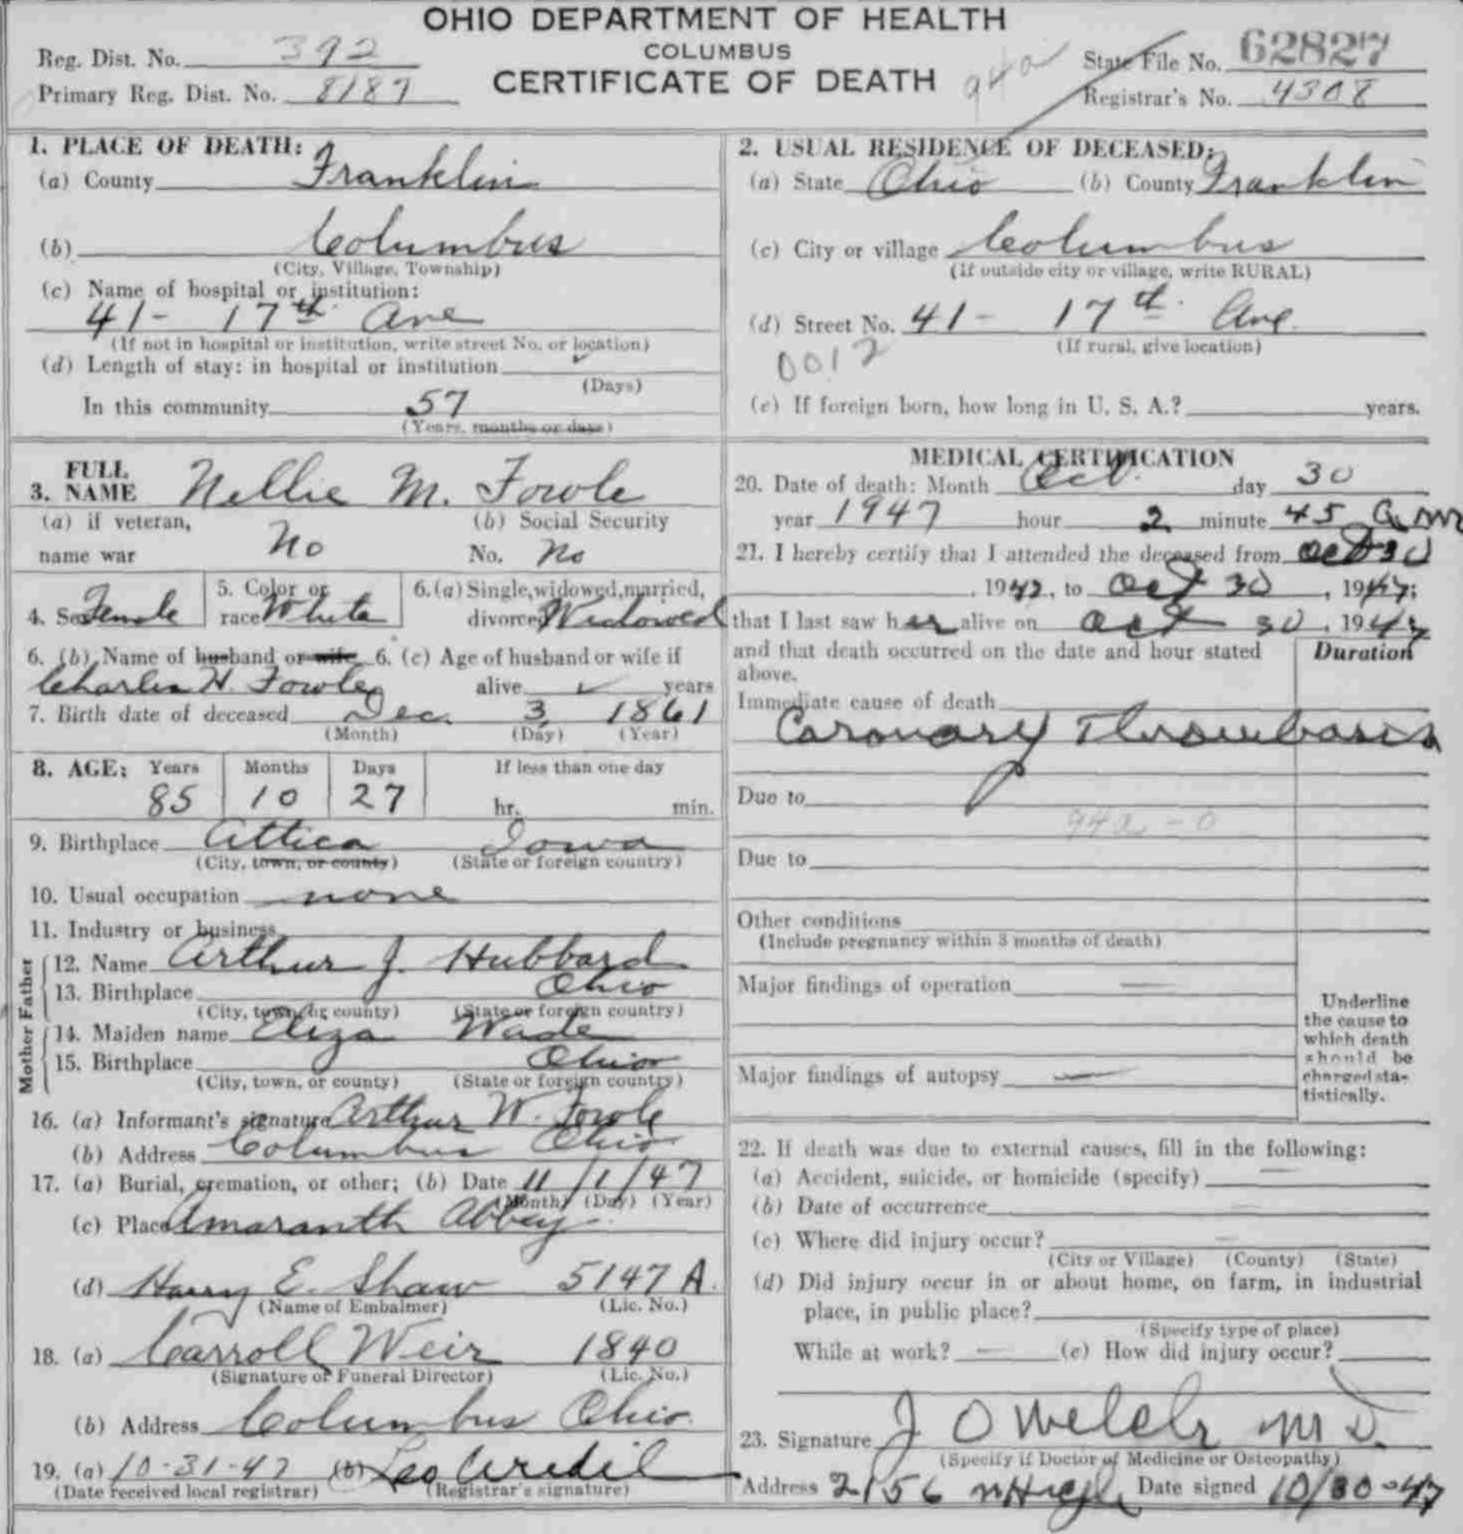 OHIO DEPARTMENT OF HEALTH
COLUMBUS
CERTIFICATE OF DEATH
Reg. Dist. No. 392
Primary Reg. Dist. No. 8187
94a
State File No. 62827
Registrar's No. 4308
1. PLACE OF DEATH:
(a) County Franklin
(b) Columbus
(City, Village, Township)
(c) Name of hospital or institution:
41- 17th Ave
(If not in hospital or institution, write street No. or location)
(d) Length of stay: in hospital or institution
(Days)
In this community 57
(Years, months or days)
2. USUAL RESIDENCE OF DECEASED:
(a) State Ohio (b) County Franklin
(c) City or village Columbus
(If outside city or village, write RURAL)
(d) Street No. 41- 17th Ave.
(If rural, give location)
0012
(e) If foreign born, how long in U. S. A.? years.
3. FULL NAME Nellie M. Fowle
(a) if veteran, name war No
(b) Social Security No. No
4. Sex Female
5. Color or race White
6. (a) Single, widowed, married, divorced Widowed
6. (b) Name of husband or wife Charles H. Fowle
6. (c) Age of husband or wife if alive years
7. Birth date of deceased Dec. 3, 1861
(Month) (Day) (Year)
8. AGE: Years Months Days If less than one day
85 10 27 hr. min.
9. Birthplace Attica Iowa
(City, town, or county) (State or foreign country)
10. Usual occupation none
11. Industry or business
Father
12. Name Arthur J. Hubbard
13. Birthplace Ohio
(City, town, or county) (State or foreign country)
Mother
14. Maiden name Eliza Wade
15. Birthplace Ohio
(City, town, or county) (State or foreign country)
16. (a) Informant's signature Arthur W. Fowle
(b) Address Columbus Ohio
17. (a) Burial, cremation, or other; (b) Date 11/1/47
(Month) (Day) (Year)
(c) Place Amaranth Abbey
(d) Harry E. Shaw 5147 A.
(Name of Embalmer) (Lic. No.)
18. (a) Carroll Weir 1840
(Signature of Funeral Director) (Lic. No.)
(b) Address Columbus Ohio.
19. (a) 10-31-47 (b) Leo
(Date received local registrar) (Registrar's signature)
MEDICAL CERTIFICATION
20. Date of death: Month Oct. day 30
year 1947 hour 2 minute 45 a m
21. I hereby certify that I attended the deceased from Oct 30
, 1947, to Oct 30, 1947;
that I last saw her alive on Oct 30, 1947
and that death occurred on the date and hour stated above.
Duration
Immediate cause of death
Coronary Thrombosis
Due to
94a - 0
Due to
Other conditions
(Include pregnancy within 3 months of death)
Major findings of operation —
Major findings of autopsy —
Underline
the cause to
which death
should be
charged sta-
tistically.
22. If death was due to external causes, fill in the following:
(a) Accident, suicide, or homicide (specify) —
(b) Date of occurrence —
(c) Where did injury occur? —
(City or Village) (County) (State)
(d) Did injury occur in or about home, on farm, in industrial
place, in public place?
(Specify type of place)
While at work? — (e) How did injury occur?
23. Signature J O Welch M D.
(Specify if Doctor of Medicine or Osteopathy)
Address 2156 N High Date signed 10/30-47